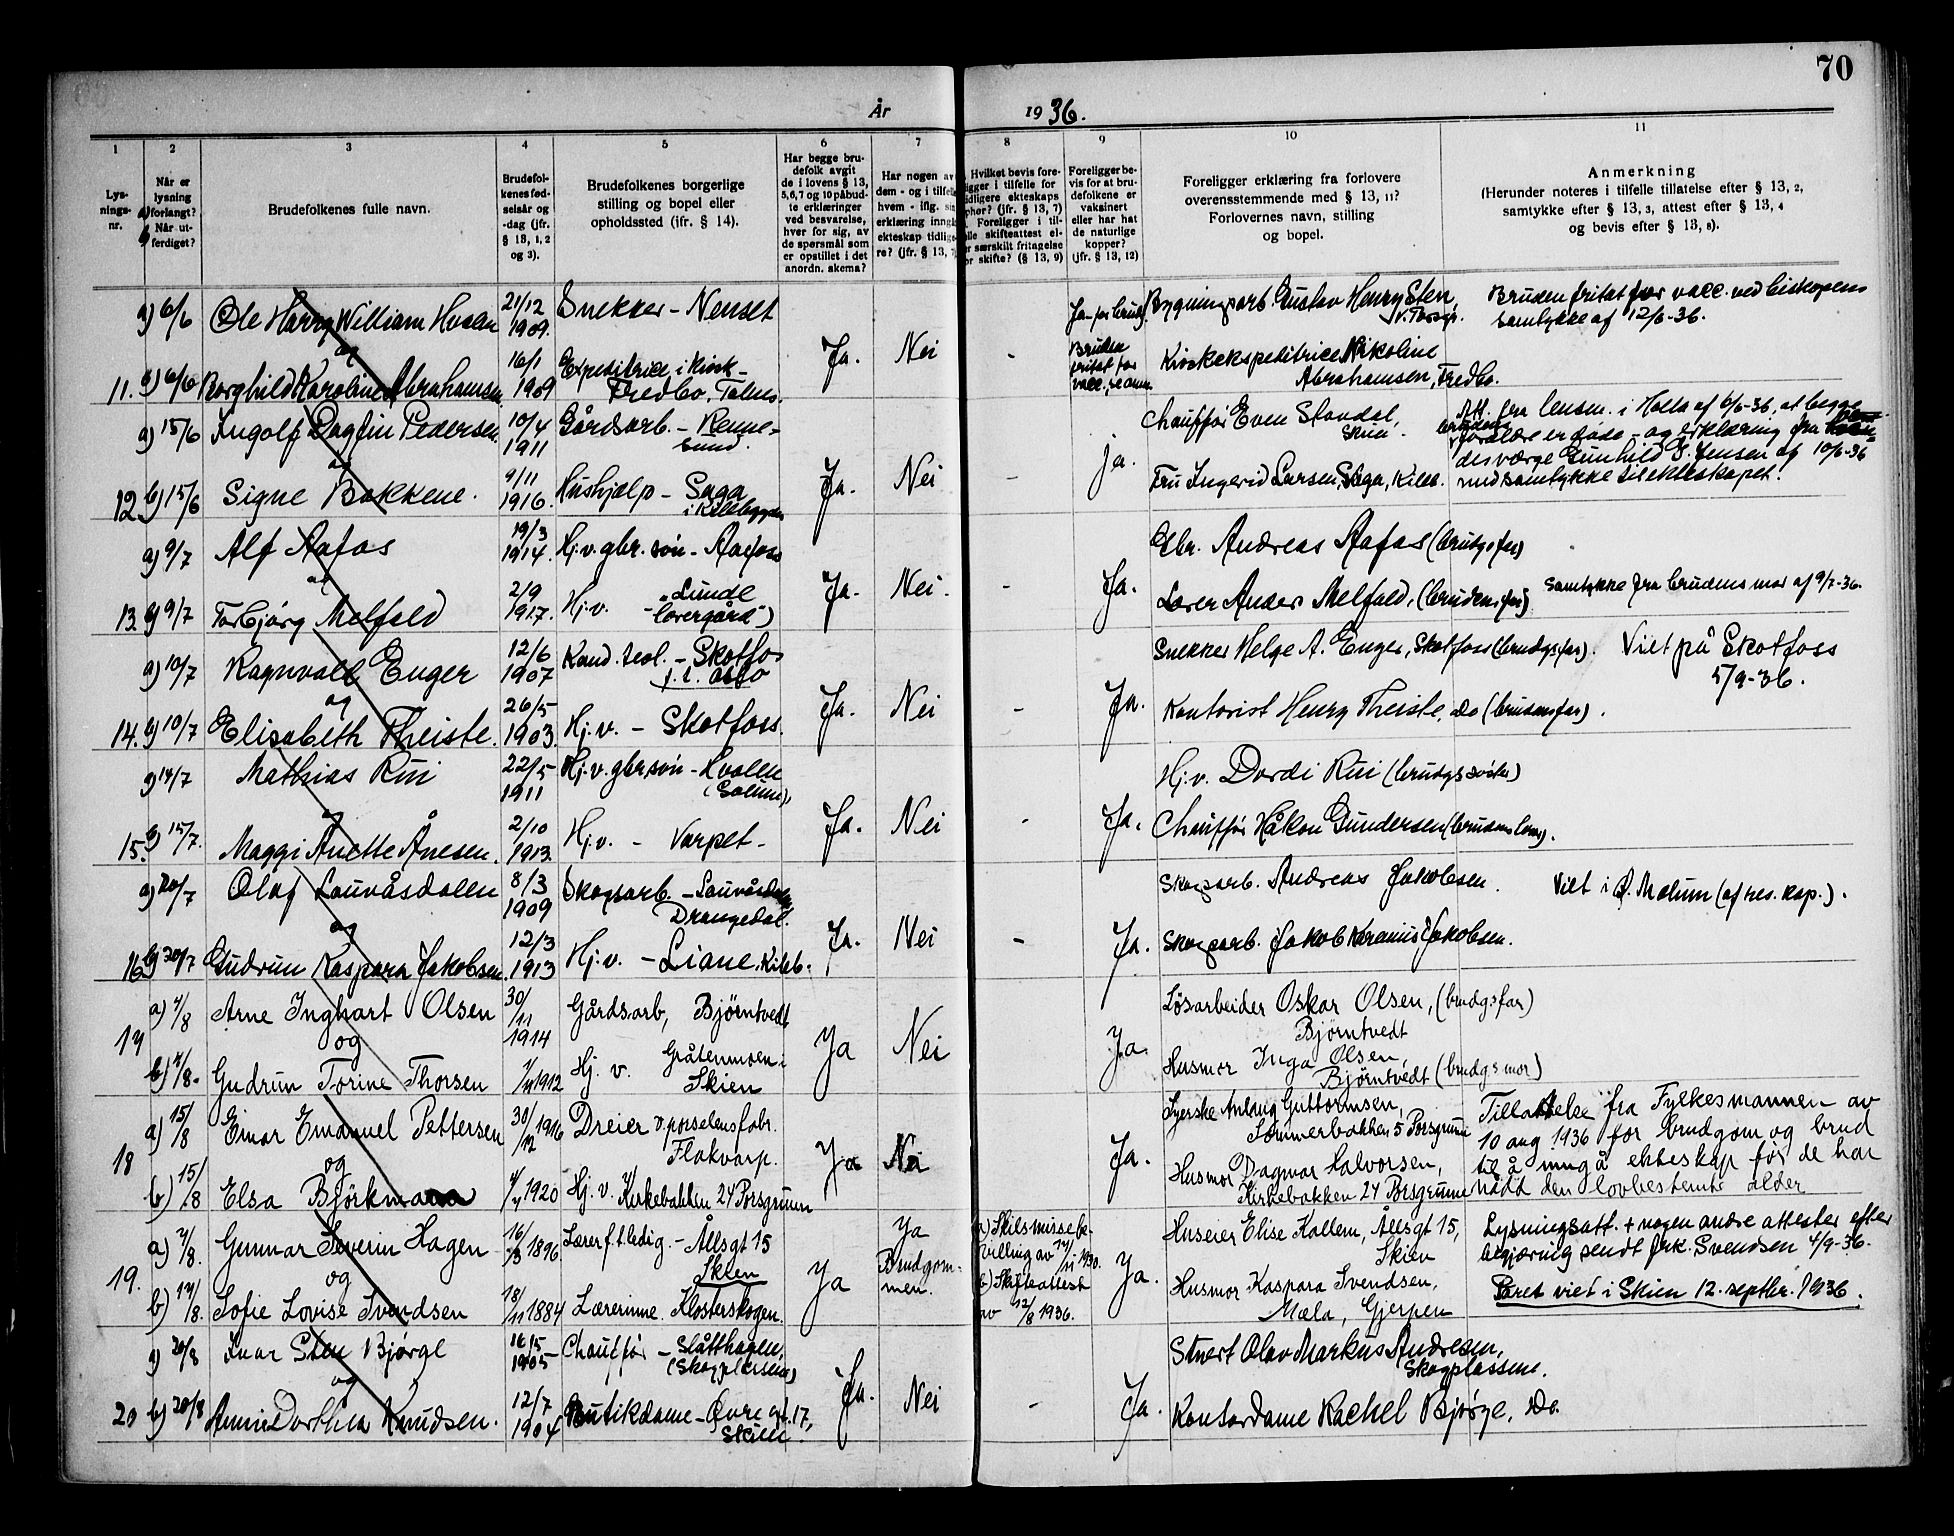 70
År 1936.
1
2
3
4
5
6
7
8
9
10
11
Lys-
nings-
nr.
Når er
lysning
forlangt?
Når ut-
ferdiget?
Brudefolkenes fulle navn.
Brudefol-
kenes fød-
selsår og
-dag (jfr.
§ 13, 1, 2
og 3).
Brudefolkenes borgerlige
stilling og bopel eller
opholdssted (ifr. § 14).
Har begge bru-
defolk avgit
de i lovens § 13,
5,6,7 og 10 påbud-
te erklæringer
ved besvarelse,
hver for sig, av
de spørsmål som
er opstillet i det
anordn. skema?
Har nogen av
dem - og i tilfelle
hvem - iflg. sin
erklæring inngått
ekteskap tidlige-
re? (jfr. § 13, 7)
Hvilket bevis fore-
ligger i tilfelle for
tidligere ekteskaps
ophør? (jfr. § 13, 7)
Foreligger i til-
felle skifteattest el-
ler særskilt fritagelse
for skifte? (§ 13, 9)
Foreligger be-
vis for at bru-
defolkene er
vaksinert
eller har hat
de naturlige
kopper?
(jfr. § 13, 12)
Foreligger erklæring fra forlovere
overensstemmende med § 13, 11?
Forlovernes navn, stilling
og bopel.
Anmerkning
(Herunder noteres i tilfelle tillatelse efter § 13, 2,
samtykke efter § 13, 3, attest efter § 13, 4
og bevis efter § 13, 8).
a) 6/6 Ole Harry William Hvaan 21/12 1909. Snekker – Nenset
og
11. b) 6/6 Borghild Karoline Abrahamsen 16/1 1909 Expeditrice i kiosk – Fredbo,
Ja. Nei -
Ja for brudg.
Bruden
fritat for
vacc., se anm.
Bygningsarb. Gustav Henry Sten,
V. Porsgr.
Kioskekspeditrice Nikoline
Abrahamsen, Fredbo.
Bruden fritat for vacc. ved biskopens
samtykke af 12/6-36.
a) 15/6 Ingolf Dagfin Pedersen 10/4 1911 Gårdsarb. –
og
12. b) 15/6 Signe Bakkene. 9/11 1916. Hushjælp – Saga
i Kilebygden
Ja. Nei - ja.
Chauffør Even Slandal,
Skien.
Fru Ingerid Larsen, Saga, Kileb.
Att. fra lensm. i Holla af 6/6-36, at begge
brudens forældre er døde – og erklæring fra
desværge Gunhild E. Jensen af 10/6-36
med samtykke til ekteskapet.
a) 9/7 Alf Aafos 19/3 1914. Hj.v. gbr. søn – Aafoss
og
13. b) 9/7 Torbjørg Melfald 2/9 1917. Hj.v. – "Lunde
Ja. Nei. - Ja.
Gbr. Andreas Aafos (brudgs far)
Lærer Anders Melfald, (brudens far)
Samtykke fra brudens mor af 9/7-36.
a) 10/7 Ragnvald Enger 12/6 1907 Kand. teol. – Skotfos
f. t. Oslo
og
14. b) 10/7 Elisabeth Theiste. 26/5 1903. Hj.v. – Skotfoss.
Ja. Nei - Ja.
Snekker Helge A. Enger, Skotfoss (brudgs far).
Kontorist Henry Theiste, do (brudens far).
Viet på Skotfoss
5/9-36.
a) 14/7 Mathias Rui 22/5 1911 Hj.v. gbr søn – Hvalen
(Solum),
15. b) 15/7. Maggi Anette Ånesen. 2/10 1913. Hj.v. – Varpet –
Ja. Nei - Ja.
Hj.v. Dordi Rui (brudgs søster)
Chauffør Håkon Gundersen
a) 20/7 Olaf Lauvåsdalen 8/3 1909 Skogsarb. – Lauvåsdalen,
Drangedal.
og
16. b) 20/7 Gudrun Kaspara Jakobsen. 12/3 1913 Hj.v. – Liane, Kileb.
Ja. Nei - Ja.
Skogsarb. Andreas Jakobsen.
Skogsarb. Jakob Keranius Jakobsen.
Viet i Ø. Melum (af res. kap.).
a) 4/8 Arne Inghart Olsen 30/11 1914 Gårdsarb, Björntvedt
17 og
b) 4/8. Gudrun Torine Thorsen 1912 Hj. v. Gråtenmoen.
Skien
Ja Nei Ja.
Løsarbeider Oskar Olsen, (brudgs far)
Björntvedt
Husmor Inga Olsen,
Björntvedt (brudgs mor)
a) 15/8 Einar Emanuel Pettersen 30/12 1916 Dreier v. porselensfabr.
Flakvarp.
18 og
b) 15/8 Elsa Björkmann 1920 Hj. v. Kirkebakken 24 Porsgrunn
Ja Nei Ja.
Syerske Anlaug Guttormsen,
Sommerbakken 5 Porsgrunn
Husmor Dagmar Halvorsen,
Kirkebakken 24 Porsgrunn
Tillatelse fra Fylkesmannen av
10 aug 1936 for brudgom og brud
til å inngå ekteskap før de har
nådd den lovbestemte alder
a) 7/8. Gunnar Severin Hagen 16/3 1896 Lærer f. t. ledig. – Ållsgt 15
Skien
19. og
b) 14/8. Sofie Lovise Svendsen 18/11 1884 Lærerinne. Klosterskogen.
Ja Ja
Brudgom-
men.
a) Skilsmissebe-
villing av 14/11 1930.
b) Skifteattest
av 12/8 1936.
Ja.
Huseier Elise Kallem, Ållsgt 15,
Skien
Husmor Kaspara Svendsen,
Mæla, Gjerpen
Lysningsatt. + nogen andre attester efter
begjæring sendt frk. Svendsen 4/9-36.
Paret viet i Skien 12. septbr. 1936.
a) 20/8 Ivar Sten Bjørge 16/5 1905 Chauffør – Slåtthagen,
(Skogplassene)
og
20 b) 20/8 Annie Dorthea Knudsen. 12/7 1904 Butikdame – Øvre gt. 17,
Skien.
Ja. Nei - Ja.
Stuert Olav Markus Andresen,
Skogplassene.
Kontordame Rachel Bjørge, Do.